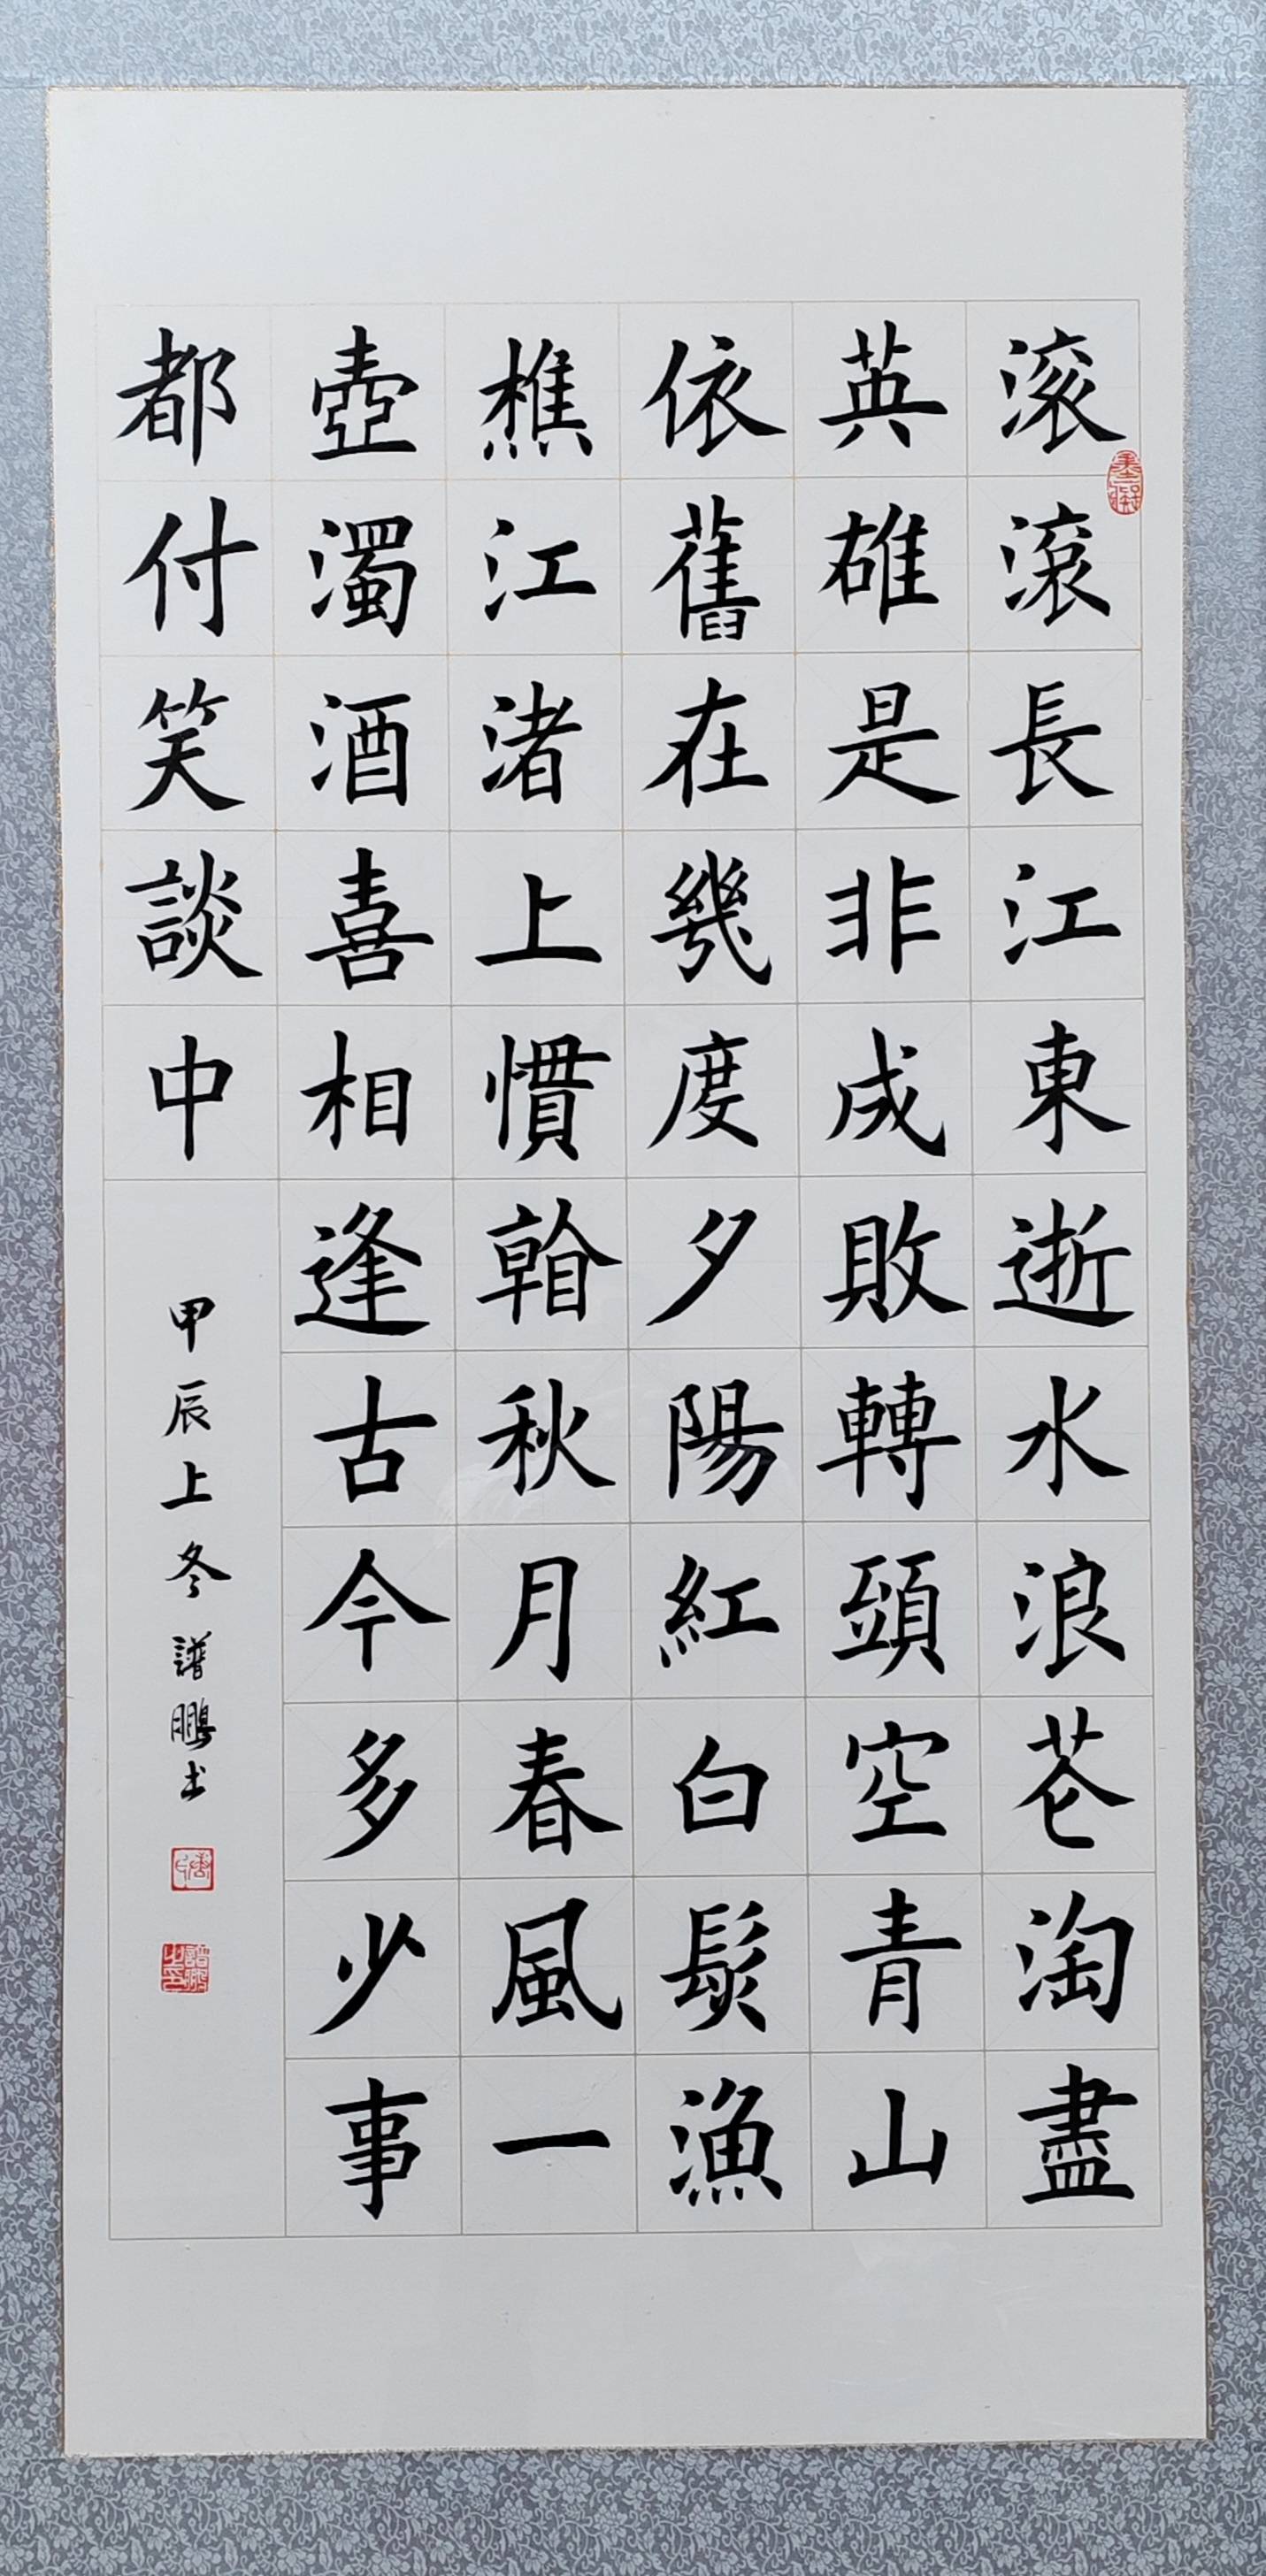 滚滾長江東逝水浪花淘盡
英雄是非成敗轉頭空青山
依舊在幾度夕陽紅白髮漁
樵江渚上慣看秋月春風一
壺濁酒喜相逢古今多少事
都付笑談中
甲辰上冬譜鵬书
譜鵬之印